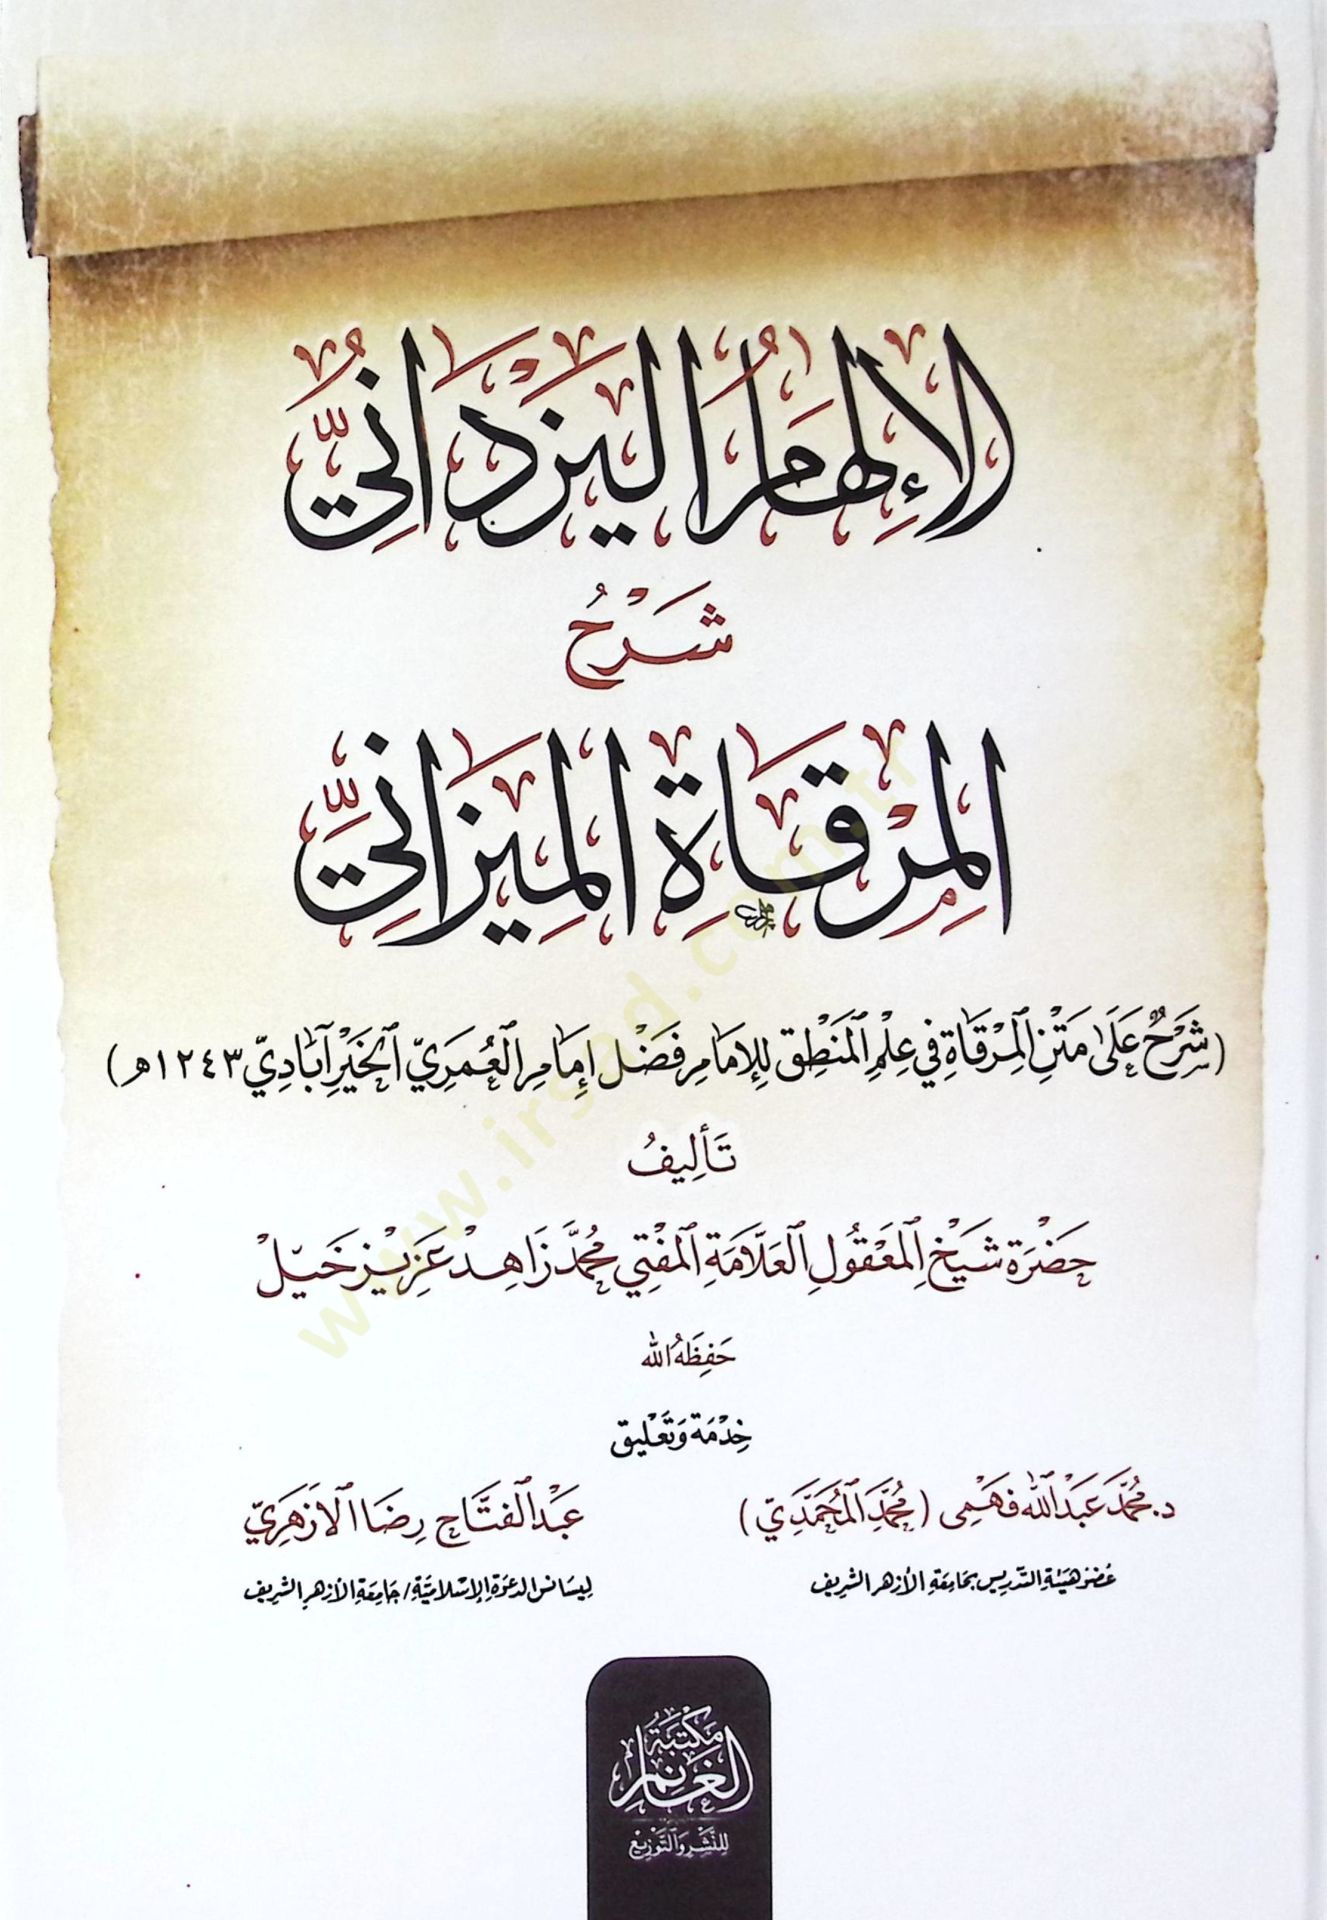 الإِلهَامُ اليَزْدَانِيُّ
شَرْحُ
المِرْقَاةِ المِيزَانِيِّ
(شَرْحٌ عَلَى مَتْنِ المِرْقَاةِ فِي عِلْمِ المَنْطِق لِلإِمَامِ فَضْل إِمَامِ العُمَرِيّ الخَيْرِ آبَادِيّ ١٢٤٣ھ)
تَأْلِيفُ
حَضْرَة شَيْخ المَعْقُولِ العَلَّامَةِ المُفْتِي مُحَمَّد زَاهِد عَزِيز خَيْلْ
حَفِظَهُ الله
خِدْمَة وَتَعْلِيق
د. مُحَمَّد عَبْد الله فَهْمِى (مُحَمَّد المُحَمَّدِيّ)
عُضْو هَيْئَةِ التَّدْرِيس بجَامِعَةِ الأَزْهَر الشَّرِيف
عَبْد الفَتَّاح رِضَا الأَزْهَرِيّ
لِيسَانس الدعوَة الإِسْلَامِيَّة/ جَامِعَة الأَزْهرِ الشَّرِيف
مَكْتَبَةُ
الغَانِم
لِلنَّشْرِ وَالتَّوْزِيْع
www.irsad.com.tr